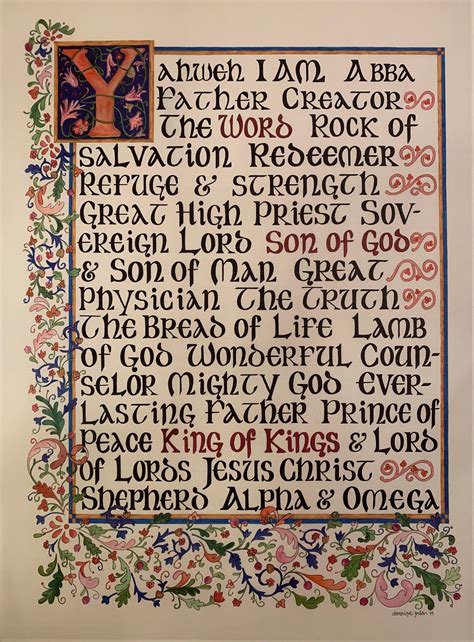 Yahweh I AM Abba
Father Creator
the WORD Rock of
salvation Redeemer
Refuge & strength
Great High Priest Sov-
ereign Lord Son of God
& Son of Man Great
Physician The Truth
The Bread of Life Lamb
of God Wonderful Coun-
selor Mighty God Ever-
lasting Father Prince of
Peace King of Kings & Lord
of Lords Jesus Christ
Shepherd Alpha & Omega